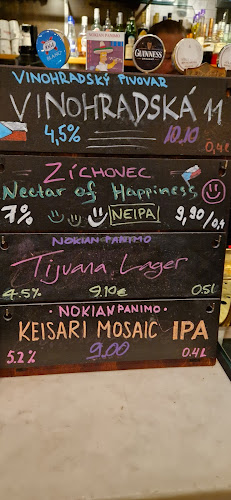 BLANC
NOKIAN PANIMO
GUINNESS
VINOHRADSKÝ PIVOVAR
VINOHRADSKÁ 11
4,5% 10,10 0,4L
ZÍCHOVEC
Nectar of Happiness
7% NEIPA 9,90/0,4
NOKIAN PANIMO
Tijuana Lager
4.5% 9.10€ 0.5l
·NOKIAN PANIMO·
KEISARI MOSAIC IPA
5.2% 9.00 0.4L